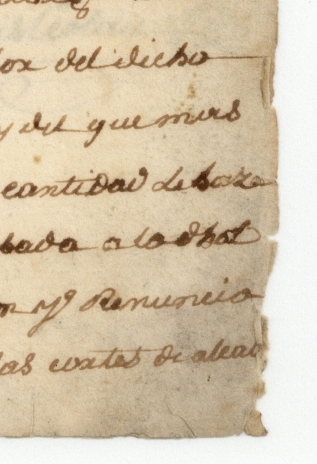 lor del dicho
y del que mas
cantidad le haze
bada a lo dhos
n y Renuncio
las cortes de alcal